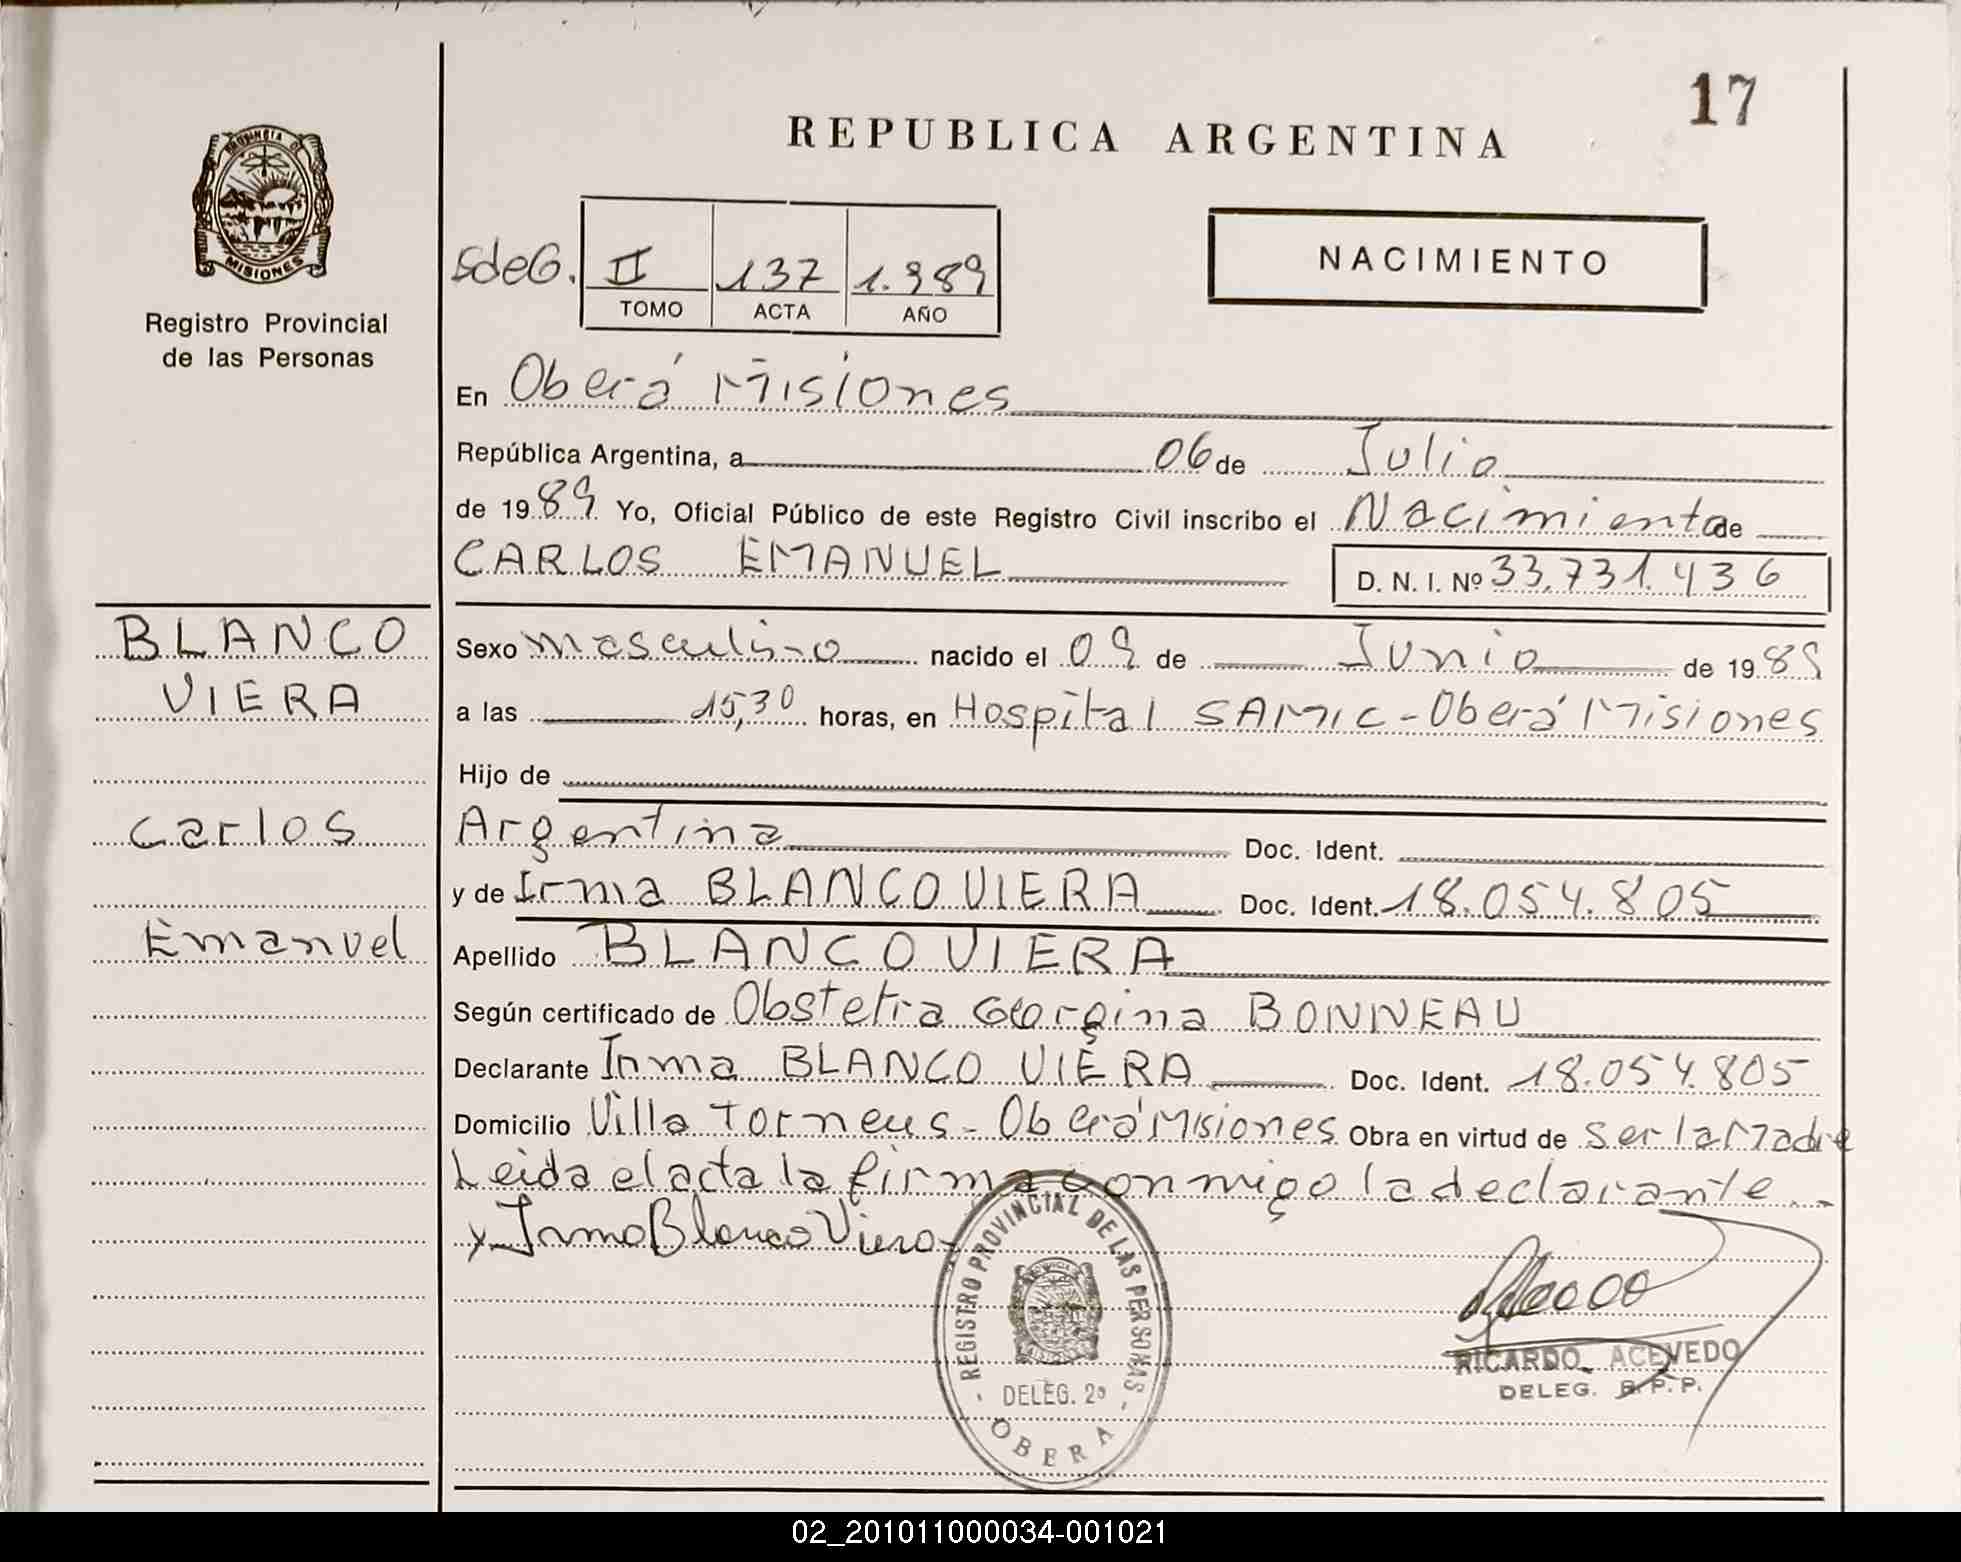 17
REPUBLICA ARGENTINA
PROVINCIA DE
MISIONES
Registro Provincial
de las Personas
SdeG. II 137 1.989
TOMO ACTA AÑO
NACIMIENTO
En Oberá Misiones
República Argentina, a 06 de Julio
de 1989 Yo, Oficial Público de este Registro Civil inscribo el Nacimiento de
CARLOS EMANUEL D. N. I. Nº 33.731.436
BLANCO
VIERA
Carlos
Emanuel
Sexo masculino nacido el 09 de Junio de 1989
a las 15,30 horas, en Hospital SAMIC - Oberá Misiones
Hijo de
Argentina Doc. Ident.
y de Irma BLANCO VIERA Doc. Ident. 18.054.805
Apellido BLANCO VIERA
Según certificado de Obstetra Georgina BONNEAU
Declarante Irma BLANCO VIERA Doc. Ident. 18.054.805
Domicilio Villa Torneus - Oberá Misiones Obra en virtud de ser la Madre
Leida el acta la firma conmigo la declarante
x Irma Blanco Viera
REGISTRO PROVINCIAL DE LAS PERSONAS
DELEG. 2º
OBERA
RICARDO ACEVEDO
DELEG. R.P.P.
02_201011000034-001021